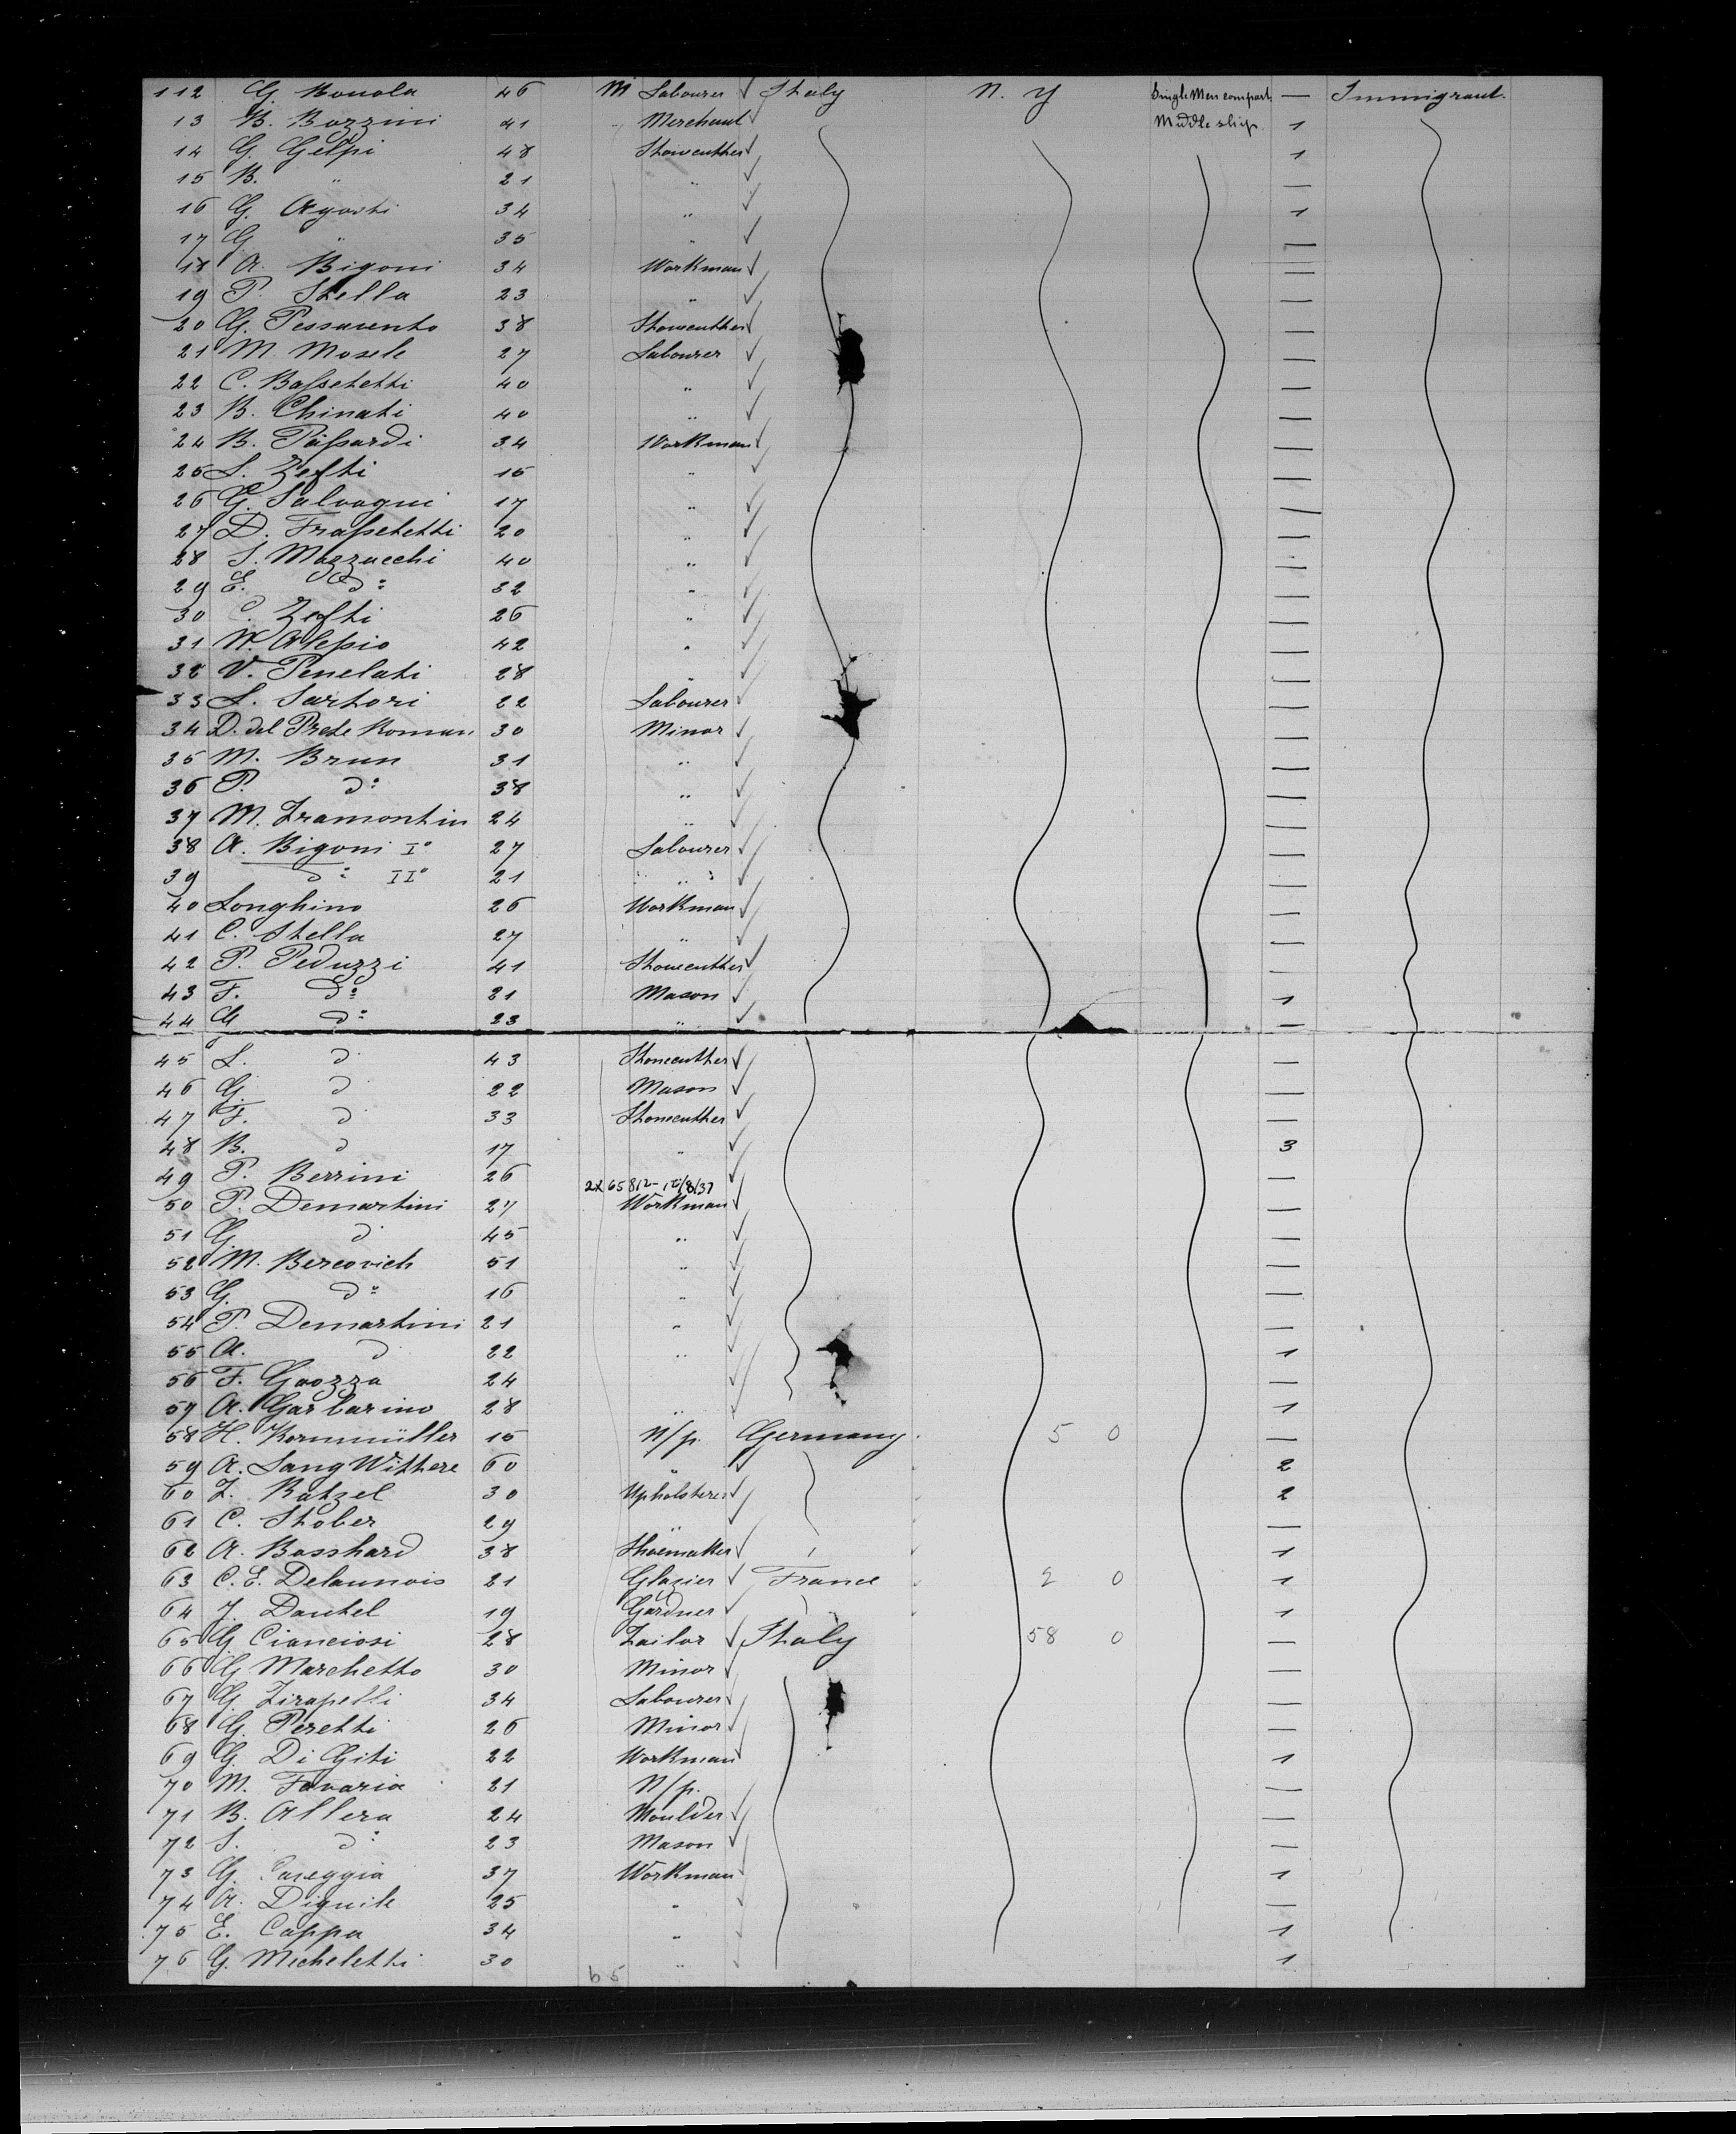 112 G. Bonola 46 M Labourer ✓ Italy N. Y Single Men compart. — Immigrant.
13 B. Bozzini 41 Merchant ✓ Middle ship 1
14 G. Gelpi 48 Stonecutter ✓ 1
15 B. " 21 " ✓ —
16 G. Agosti 34 " ✓ 1
17 G. " 35 " ✓ —
18 A. Bigoni 34 Workman ✓ —
19 P. Stella 23 " ✓ —
20 G. Pessavento 38 Stonecutter ✓ —
21 M. Mosele 27 Labourer ✓ —
22 C. Bassetetti 40 " ✓ —
23 B. Chinati 40 " ✓ —
24 B. Passardi 34 Workman ✓ —
25 S. Zesti 15 " ✓ —
26 G. Salvagni 17 " ✓ —
27 D. Frassetetti 20 " ✓ —
28 S. Mazzucchi 40 " ✓ —
29 E. do 32 " ✓ —
30 C. Zesti 26 " ✓ —
31 N. Alessio 42 " ✓ —
32 V. Penelati 28 " ✓ —
33 S. Sartori 22 Labourer ✓ —
34 D. del Prete Roman 30 Minor ✓ —
35 M. Brun 31 " ✓ —
36 P. do 38 " ✓ —
37 M. Tramontin 24 " ✓ —
38 A. Bigoni I° 27 Labourer ✓ —
39 do II° 21 " ✓ —
40 Longhino 26 Workman ✓ —
41 C. Stella 27 " ✓ —
42 P. Peduzzi 41 Stonecutter ✓ —
43 F. do 21 Mason ✓ 1
44 G. do 23 " ✓ —
45 L. d 43 Stonecutter ✓ —
46 G. d 22 Mason ✓ —
47 F. d 33 Stonecutter ✓ —
48 B. d 17 " ✓ 3
49 P. Berrini 26 ✓ —
50 P. Demartini 27 Workman ✓ —
51 G. d 45 " ✓ —
52 M. Bercovich 51 " ✓ —
53 G. do 16 " ✓ —
54 P. Demartini 21 " ✓ —
55 A. d 22 " ✓ 1
56 F. Gnozza 24 ✓ —
57 A. Garbarino 28 " ✓ 1
58 H. Kornmüller 15 N/p. Germany. 5 0 —
59 A. Lang Withere 60 " ✓ 2
60 Z. Batzel 30 Upholsterer ✓ 2
61 C. Stober 29 " ✓ —
62 A. Bosshard 38 Shoemaker ✓ 1
63 C. E. Delaunois 21 Glazier ✓ France 2 0 1
64 J. Dautel 19 Gardner ✓ 1
65 G. Cianciosi 28 Tailor ✓ Italy 58 0 —
66 G. Marchetto 30 Minor ✓ —
67 G. Zirapelli 34 Labourer ✓ —
68 G. Peretti 26 Minor ✓ —
69 G. Di Giti 22 Workman ✓ 1
70 M. Favaria 21 N/p. —
71 B. Allera 24 Moulder ✓ —
72 S. do 23 Mason ✓ —
73 G. Careggia 37 Workman ✓ 1
74 A. Dignile 25 " ✓ —
75 E. Cappa 34 " ✓ 1
76 G. Micheletti 30 " ✓ 1